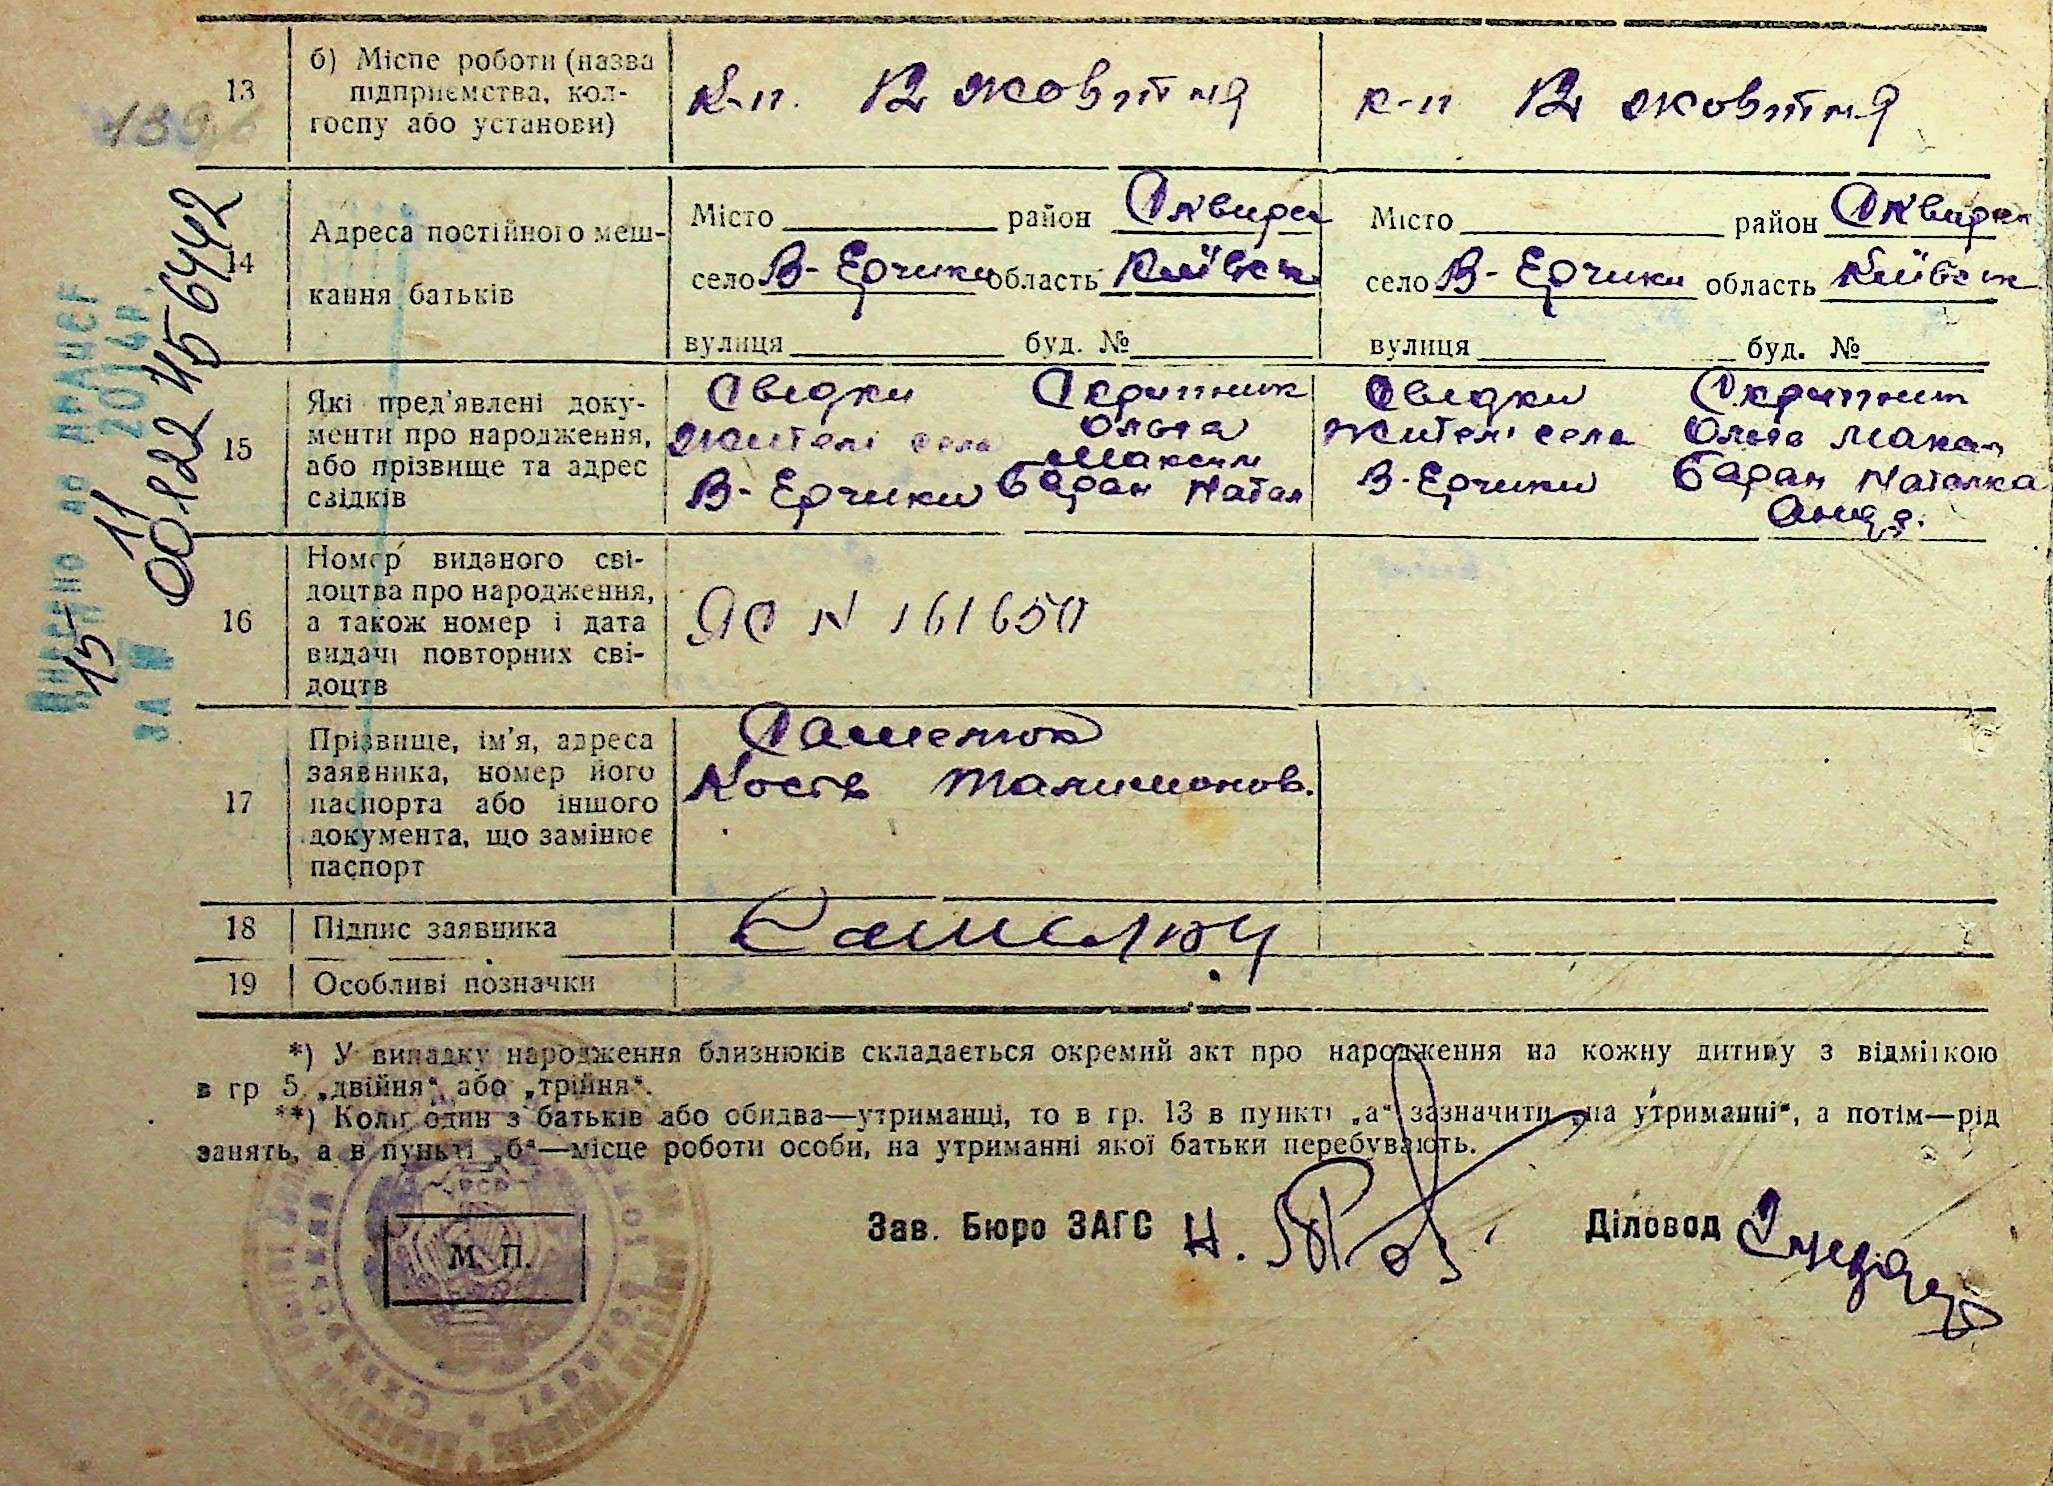 13
б) Місце роботи (назва
підприємства, кол-
госпу або установи)
к-п. жовтня
к-п жовтня
14
Адреса постійного меш-
кання батьків
Місто район Сквира
село В-Ерчики область Київськ
вулиця буд. №
Місто район Сквирск
село В-Ерчики область Київськ
вулиця буд. №
15
Які пред'явлені доку-
менти про народження,
або прізвище та адрес
свідків
Сведки
жителі села
В-Ерчики
Скрипник
Ольга
Максим
Баран Натал
Сведки
жителі села
В-Ерчики
Скрипник
Ольга Макал
Баран Наталка
16
Номер виданого сві-
доцтва про народження,
а також номер і дата
видачі повторних сві-
доцтв
ЯС N 161650
17
Прізвище, ім'я, адреса
заявника, номер його
паспорта або іншого
документа, що замінює
паспорт
Сашенюк
Кость Талимонов.
18
Підпис заявника
Сашенюк
19
Особливі позначки
*) У випадку народження близнюків складається окремий акт про народження на кожну дитину з відміткою
в гр 5 „двійня“ або „трійня“.
**) Коли один з батьків або обидва—утриманці, то в гр. 13 в пункті „а“ зазначити „на утриманні“, а потім—рід
занять, а в пункті „б“—місце роботи особи, на утриманні якої батьки перебувають.
М. П.
Зав. Бюро ЗАГС
Діловод
Внесено до ДРАЦСГ
15 11 2014р.
ЗА №
00122456442